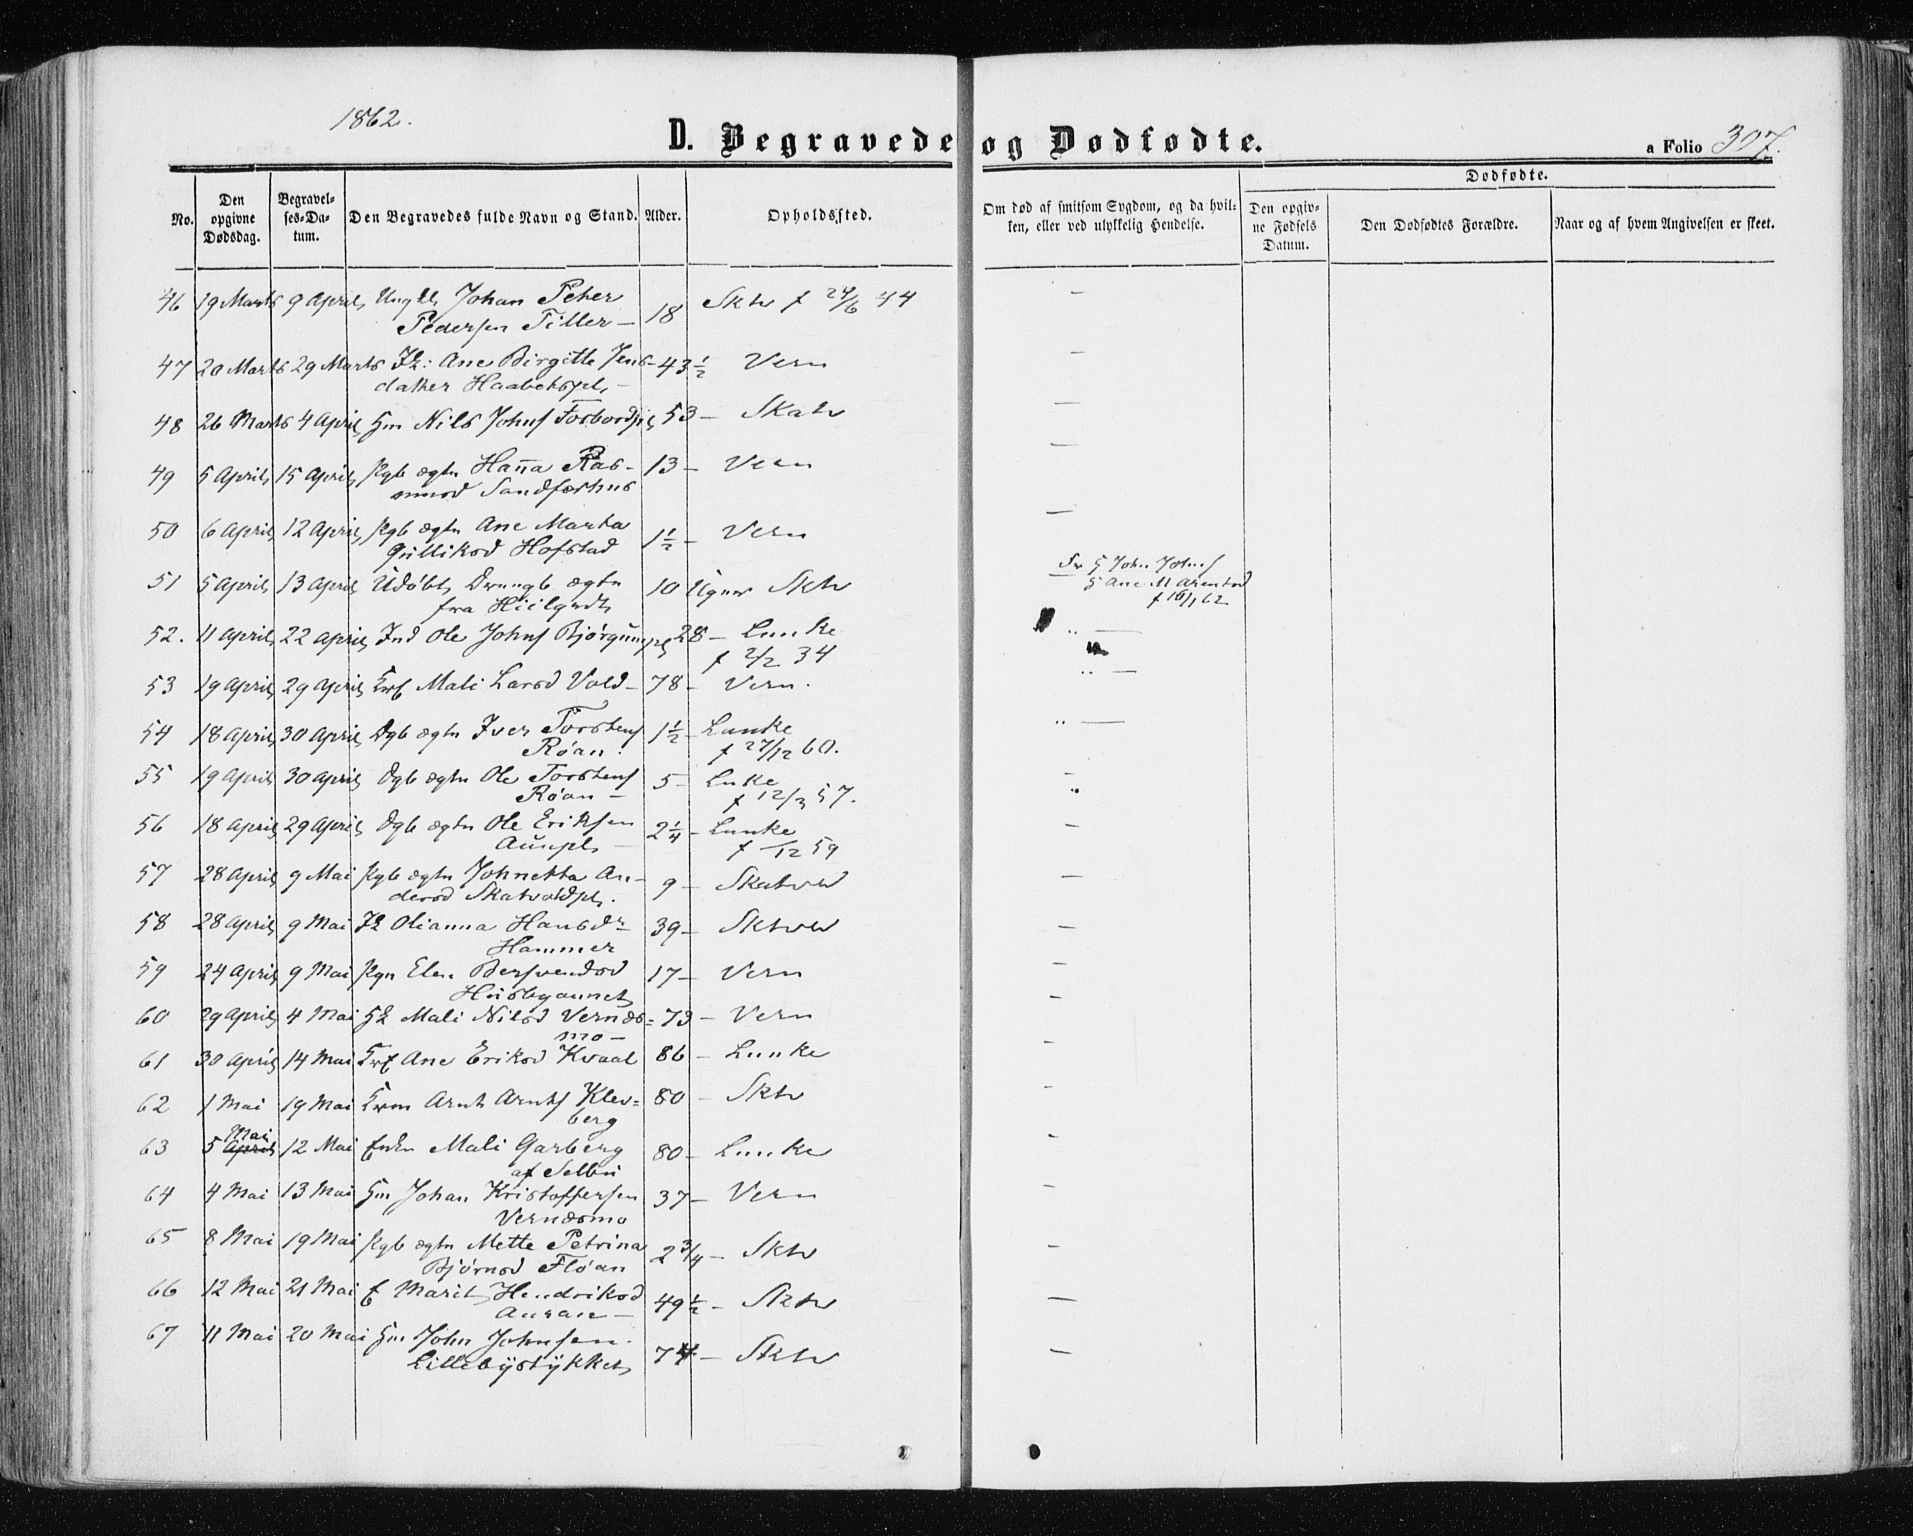 1862.
D. Begravede og Dødfødte.
a Folio 307.
No.
Den opgivne Dødsdag.
Begravelses-Datum.
Den Begravedes fulde Navn og Stand.
Alder.
Opholdssted.
Om død af smitsom Sygdom, og da hvilken, eller ved ulykkelig Hendelse.
Dødfødte.
Den opgivne Fødsels Datum.
Den Dødfødtes Forældre.
Naar og af hvem Angivelsen er skeet.
46 19 Marts 9 April Ungkl Johan Peter 18 Sktv f 24/6 44 —
Pedersen Tiller —
47 20 Marts 29 Marts Ik: Ane Birgitte Jens- 43½ — Vern —
datter Haabetspl —
48 26 Marts 4 April Gm Nils Johns Forbordpl 53 — Skatv —
49 5 April 15 April Pgb ægtn Hanna Ras- 13 — Vern —
musd Sandferhus
50 6 April 12 April Pgb ægtn Ane Marta 1½ — Vern —
Gulliksd Hofstad
51 5 April 13 April Udøbt Drengb ægtn 10 Uger Sktv Fr G John Johns
fra G Ane M Arentsd
f 16/1 62
52. 11 April 22 April Ind Ole Johns 28 — Lunke —
f 2/2 34
53 19 April 29 April Mali Larsd Vold — 78 — Vern. —
54 18 April 30 April Dgb ægtn Iver Torstens 1½ — Lanke —
Røan. f 27/12 60.
55 19 April 30 April Dgb ægtn Ole Torstens 5 — Lnke —
Røan — f 12/3 57.
56 18 April 29 April Dgb ægtn Ole Eriksen 2¼ — Lunke —
Aunpl — f —/12 59
57 28 April 9 Mai Pgb ægtn Johnetta An- 9 — Skatvd —
dersd Skatvoldpl.
58 28 April 9 Mai Ik Olianna Hansdr 39 — Sktvd —
Hammer
59 24 April 9 Mai Pgn Elen Bersvendsd 17 — Vern —
Husbyaunet
60 29 April 4 Mai Gk Mali Nilsd Vernæs= 73 — Vern —
mo —
61 30 April 14 Mai Ane Eriksd Kvaal 86 — Lunke —
62 1 Mai 19 Mai Arnt Arnts Klev- 80 — Sktv —
berg
63 5 April Mai 12 Mai Enke Mali Garberg 80 — Lunke —
af Selbu
64 4 Mai 13 Mai Gm Johan Kristoffersen 37 — Vern —
Vernæsmo
65 8 Mai 19 Mai Pgb ægtn Mette Petrina 2¾ — Sktv —
Bjørnsd Fløan
66 12 Mai 21 Mai F Marit Hendriksd 49½ — Sktv —
Auran —
67 11 Mai 20 Mai Gm John Johnsen. 74 — Sktv —
Lillebystykket